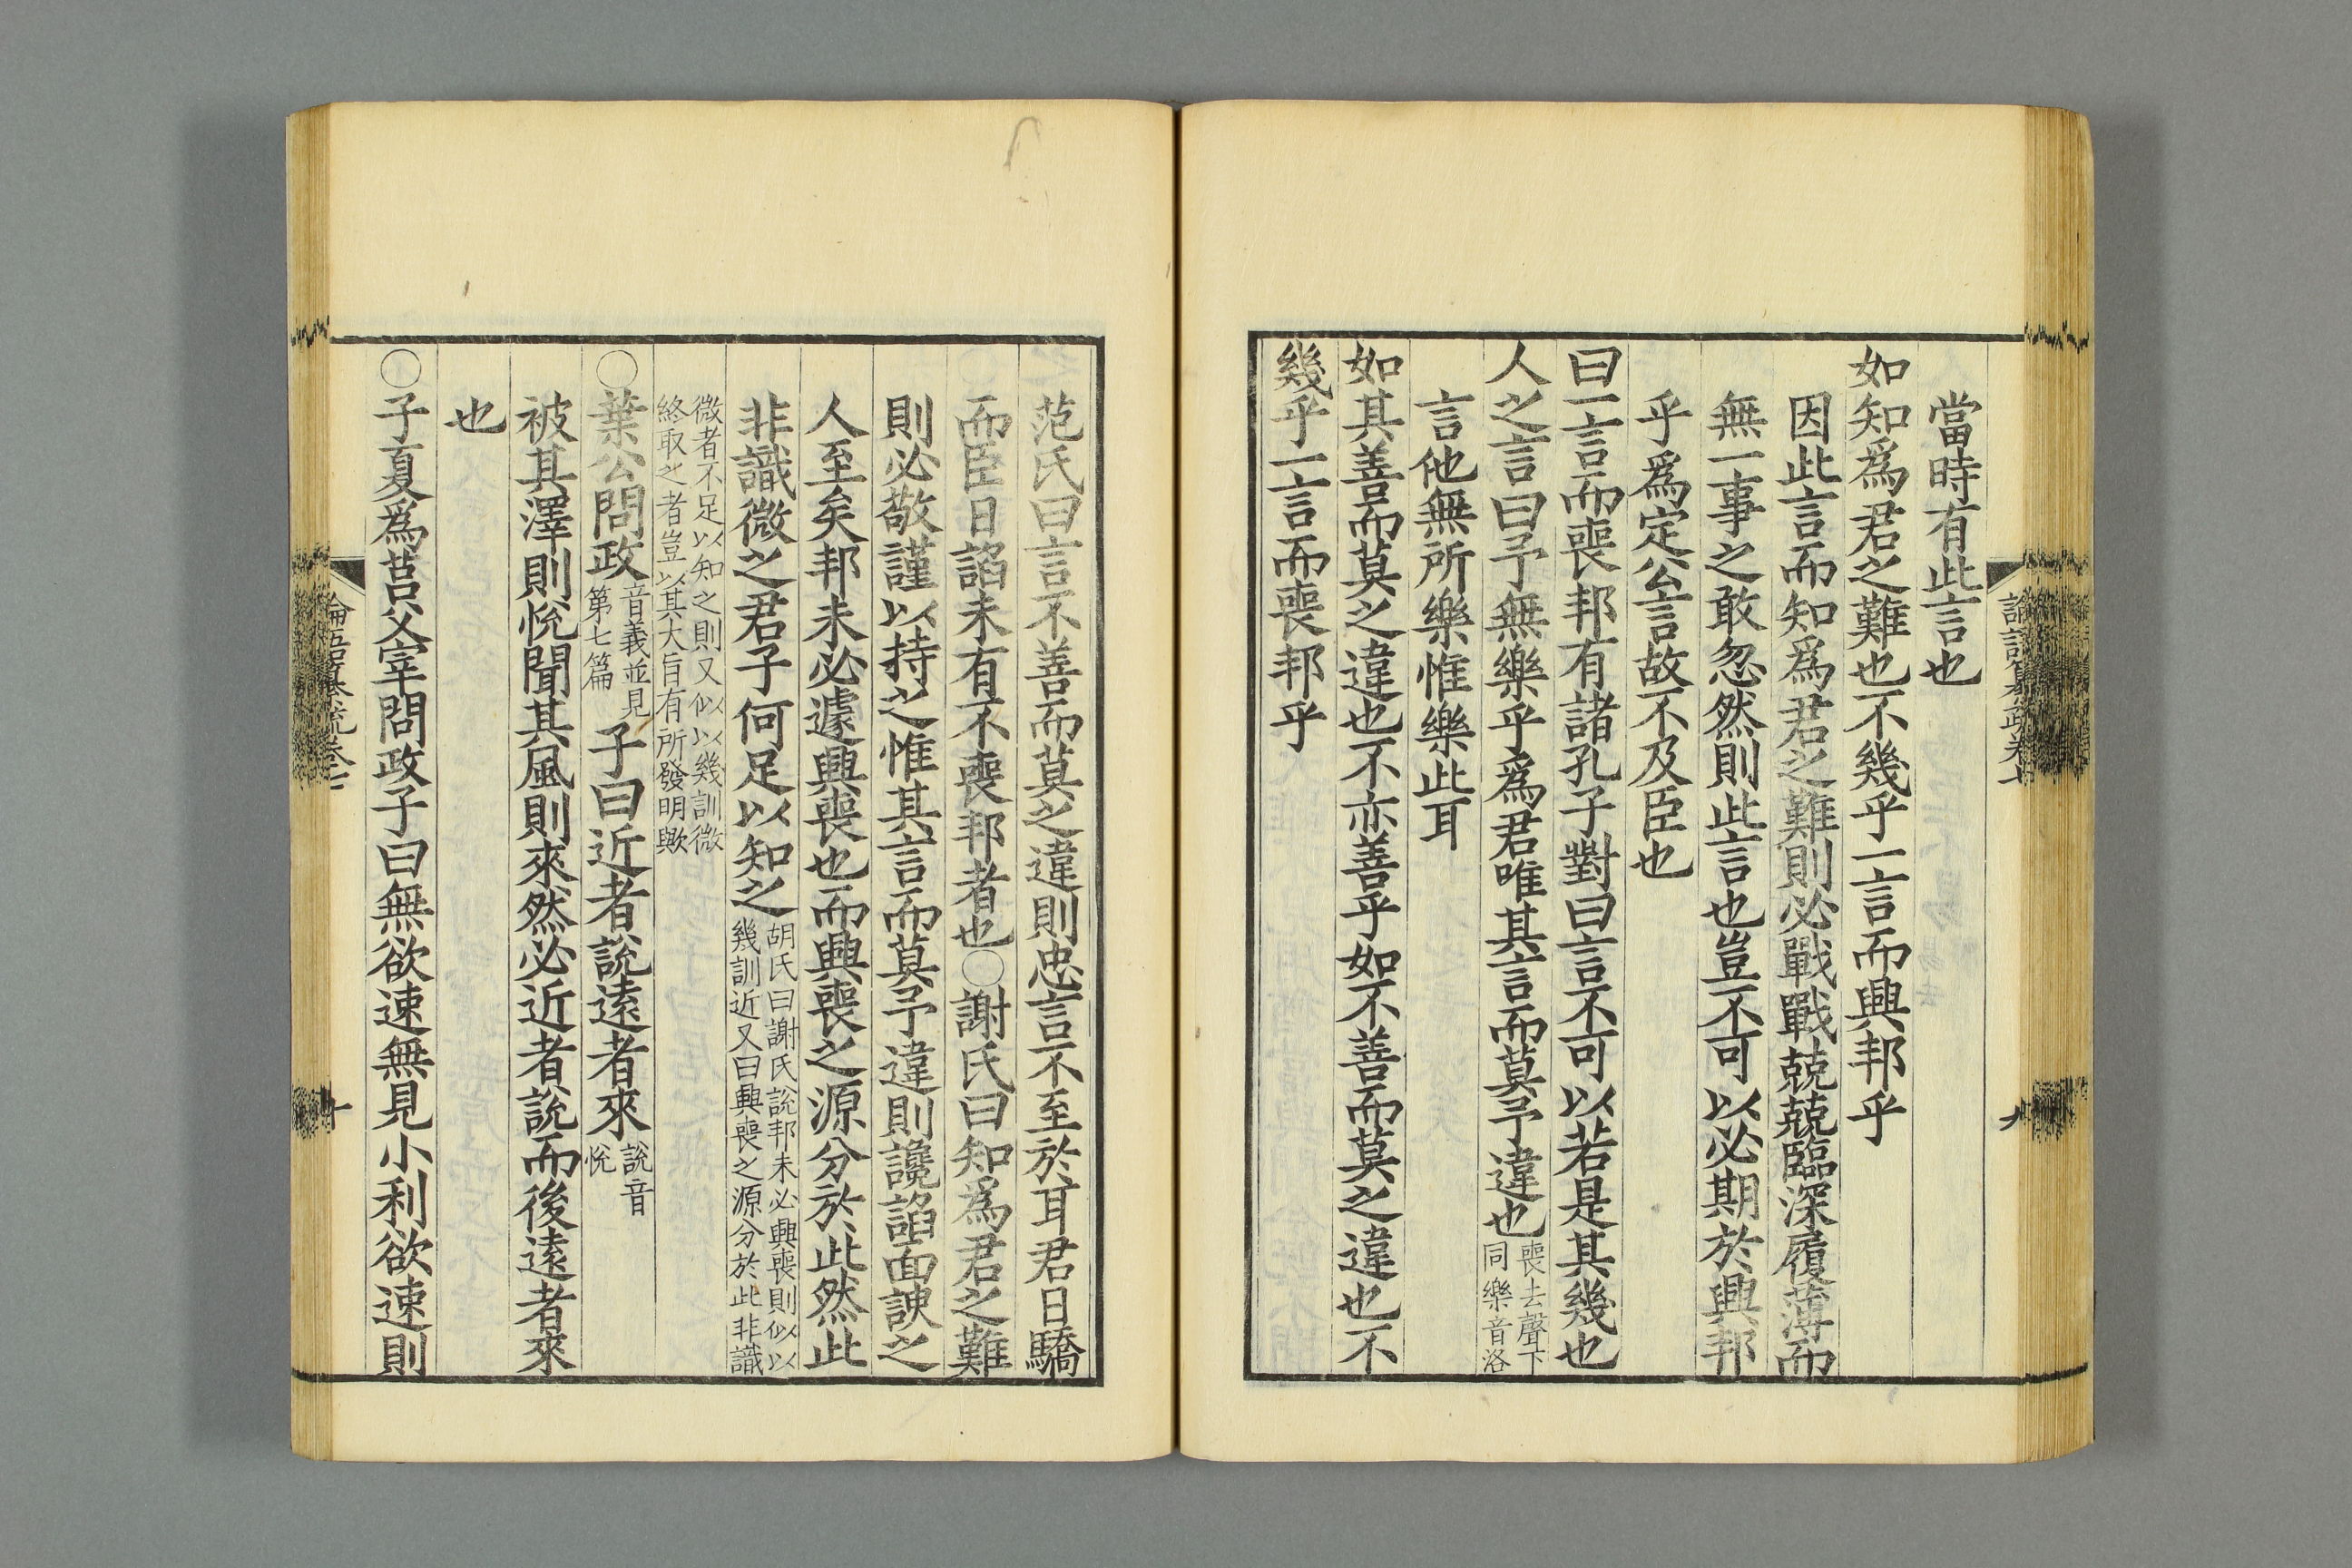 當時有此言也
如知爲君之難也不幾乎一言而興邦乎
因此言而知爲君之難則必戰戰兢兢臨深履薄而
無一事之敢忽然則此言也豈不可以必期於興邦
乎爲定公言故不及臣也
曰一言而喪邦有諸孔子對曰言不可以若是其幾也
人之言曰予無樂乎爲君唯其言而莫予違也
喪去聲下
同樂音洛
言他無所樂惟樂此耳
如其善而莫之違也不亦善乎如不善而莫之違也不
幾乎一言而喪邦乎
范氏曰言不善而莫之違則忠言不至於耳君日驕
而臣日諂未有不喪邦者也○謝氏曰知爲君之難
則必敬謹以持之惟其言而莫予違則讒諂面諛之
人至矣邦未必遽興喪也而興喪之源分於此然此
非識微之君子何足以知之
胡氏曰謝氏說邦未必興喪則似以
幾訓近又曰興喪之源分於此非識
微者不足以知之則又似以幾訓微
終取之者豈以其大旨有所發明歟
○葉公問政
音義並見
第七篇
子曰近者說遠者來
說音
悅
被其澤則悅聞其風則來然必近者說而後遠者來
也
○子夏爲莒父宰問政子曰無欲速無見小利欲速則